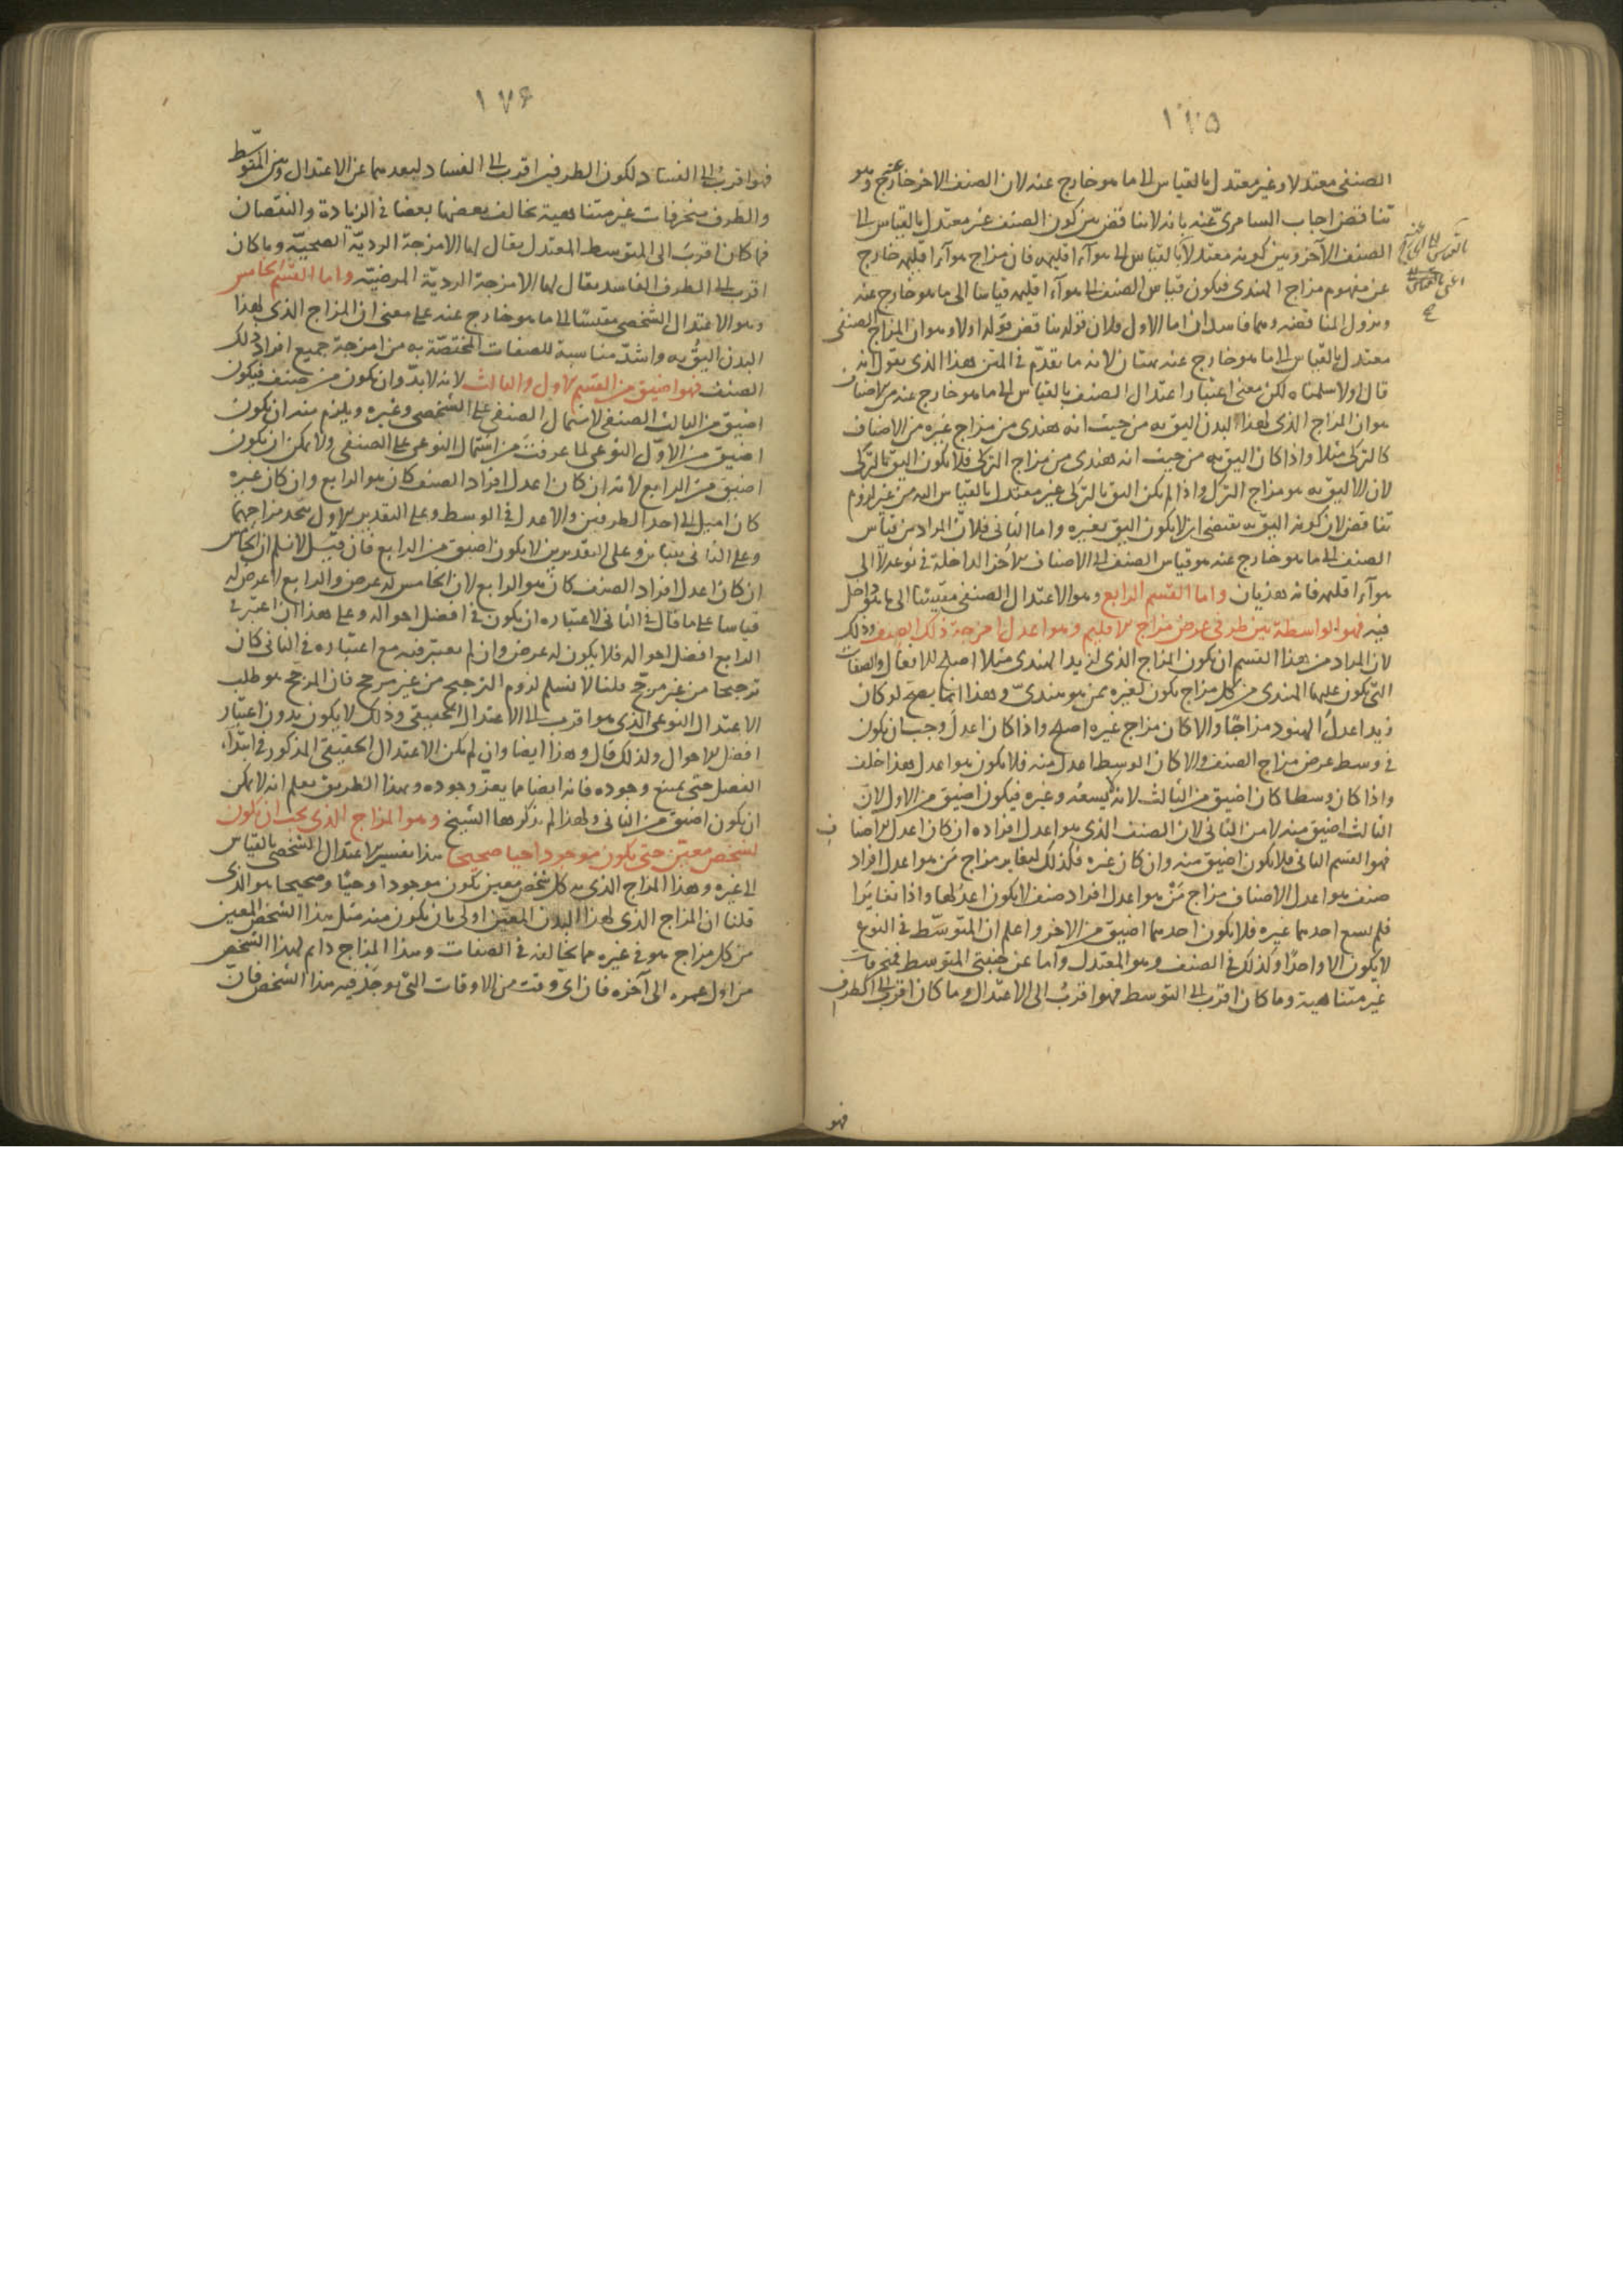 ١٧٥
الصنفى معتدلا وغير معتدل بالقياس الى ما هو خارج عنه لان الصنف الاخر خارج عنه وهو
تناقض اجاب السامرىّ عنه بانه لا يناقض بين كون الصنف غير معتدل بالقياس الى
الصنف الآخر وبين كونه معتدلا بالقياس الى هوآء اقليمه فان مزاج هوآء اقليمه خارج
عن مفهوم مزاج الهندى فيكون قياس الصنف الى هوآء اقليمه قياسا الى ما هو خارج عنه
ويزول المناقضه وهما فاسدان اما الاول فلان قوله يناقض قوله اولا وهو ان المزاج الصنفى
معتدل بالقياس الى ما هو خارج عنه بهتان لانه ما تقدّم فى المتن هذا الذى يقول انه
قال اولا سلمناه لكن معنى اعتبار اعتدال الصنف بالقياس الى ما هو خارج عنه من الاصناف
هو ان المزاج الذى لهذا البدن اليق به من حيث انه هندى من مزاج غيره من الاصناف
كالتركى مثلا واذا كان اليق به من حيث انه هندى من مزاج التركى فلا يكون اليق بالتركى
لان الاليق به هو مزاج الترك واذا لم يكن اليق بالتركى غير معتدل بالقياس اليه من غير لزوم
تناقض لان كونه اليق به يقتضى ان لا يكون اليق بغيره واما الثانى فلان المراد من قياس
الصنف الى ما هو خارج عنه هو قياس الصنف الى الاصناف الاخر الداخلة فى نوعه لا الى
هوآء اقليمه فانه هذيان واما القسم الرابع وهو الاعتدال الصنفى مقيسا الى ما هو داخل
فيه فهو الواسطة بين طرفى عرض مزاج الاقليم وهو اعدل امزجة ذلك الصنف وذلك
لان المراد من هذا القسم ان يكون المزاج الذى لزيد الهندى مثلا اصلح للافعال والصفات
التى يكون عليها الهندى من كل مزاج يكون لغيره ممن هو هندىّ وهذا انما يصح لو كان
زيد اعدلُ الهنود مزاجًا والا كان مزاج غيره اصلح واذا كان اعدل وجب ان يكون
فى وسط عرض مزاج الصنف والا كان الوسط اعدل منه فلا يكون هو اعدل هذا خلف
واذا كان وسطا كان اضيق من الثالث لانه يسعه وغيره فيكون اضيق من الاول لان
الثالث اضيق منه لا من الثانى لان الصنف الذى هو اعدل افراده ان كان اعدل الاصناف
فهو القسم الثانى فلا يكون اضيق منه وان كان غيره فكذلك لتغاير مزاج مَن هو اعدل افراد
صنف هو اعدل الاصناف مزاج مَنْ هو اعدل افراد صنف لا يكون اعدلها واذا تغايرا
فلم يسع احدهما غيره فلا يكون احدهما اضيق من الاخر واعلم ان المتوسّط فى النوع
لا يكون الا واحدًا وكذلك فى الصنف وهو المعتدل واما عن جنبتى المتوسط فمنحرفات
غير متناهية وما كان اقرب الى التوسط فهو اقربُ الى الاعتدال وما كان اقرب الى الطرف
فهو
١٧۶
فهو اقرب الى الفساد لكون الطرفين اقرب الى الفساد لبعدهما عن الاعتدال وبين المتوسّط
والطرف منحرفات غير متناهية يخالف بعضها بعضا فى الزيادة والنقصان
فما كان اقرب الى المتوسط المعتدل يقال لها الامزجة الرديّة الصحيّة وما كان
اقرب الى الطرف الفاسد يقال لها الامزجة الرديّة المرضيّة واما القسم الخامس
وهو الاعتدال الشخصى مقيسا الى ما هو خارج عنه على معنى ان المزاج الذى لهذا
البدن اليقُ به واشدّ مناسبة للصفات المختصّة به من امزجة جميع افراد ذلك
الصنف فهو اضيق من القسم الاول والثالث لانه لا بدّ وان يكون من صنف فيكون
اضيق من الثالث الصنفى لاشتمال الصنفى على الشخصى وغيره ويلزم منه ان يكون
اضيق من الاوّل النوعى لما عرفتَ من اشتمال النوعى على الصنفى ولا يمكن ان يكون
اضيق من الرابع لانه ان كان اعدل افراد الصنف كان هو الرابع وان كان غيره
كان اميل الى احد الطرفين والاعدل فى الوسط وعلى التقدير الاول يتحد مزاجهما
وعلى الثانى يتباين وعلى التقديرين لا يكون اضيق من الرابع فان قيل لا نسلم ان الخامس
ان كان اعدل افراد الصنف كان هو الرابع لان الخامس له عرض والرابع لا عرض له
قياسا على ما قال فى الثانى لاعتباره ان يكون فى افضل احواله وعلى هذا ان اعتبر فى
الرابع افضل احواله فلا يكون له عرض وان لم يعتبر فيه مع اعتباره فى الثانى كان
ترجيحا من غير مرجّح قلنا لا نسلم لزوم الترجيح من غير مرجح فان المرجح هو طلب
الاعتدال النوعى الذى هو اقرب الى الاعتدال الحقيقى وذلك لا يكون بدون اعتبار
افضل الاحوال ولذلك قال وهذا ايضا وان لم يكن الاعتدال الحقيقى المذكور فى ابتداء
الفصل حتى يمتنع وجوده فانه ايضا مما يعزّ وجوده وبهذا الطريق يعلم انه لا يمكن
ان يكون اضيق من الثانى ولهذا لم يذكرها الشيخ وهو المزاج الذى يجب ان يكون
لشخص معين حتى يكون موجودا حيا صحيحا هذا تفسير الاعتدال الشخصى بالقياس
الى غيره وهذا المزاج الذى به كل شخص معين يكون موجودا وحيّا وصحيحا هو الذى
قلنا ان المزاج الذى لهذا البدن المعيّن اولى بان يكون منه مثل هذا الشخص المعين
من كل مزاج هو فى غيره مما يخالفه فى الصفات وهذا المزاج دائم لهذا الشخص
من اول عمره الى آخره فان اىّ وقت من الاوقات التى يوجَد فيه هذا الشخص فانّ